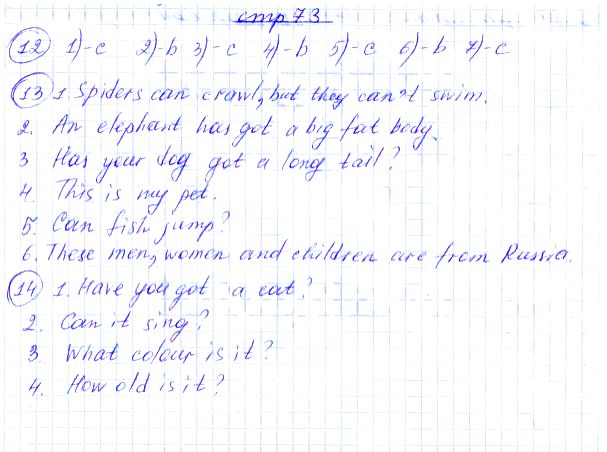 стр 73
12 1)-c 2)-b 3)-c 4)-b 5)-c 6)-b 7)-c
13 1 Spiders can crawl, but they can't swim.
2. An elephant has got a big fat body.
3 Has your dog got a long tail?
4. This is my pet.
5. Can fish jump?
6. These men, women and children are from Russia.
14 1. Have you got a cat?
2. Can it sing?
3. What colour is it?
4. How old is it?